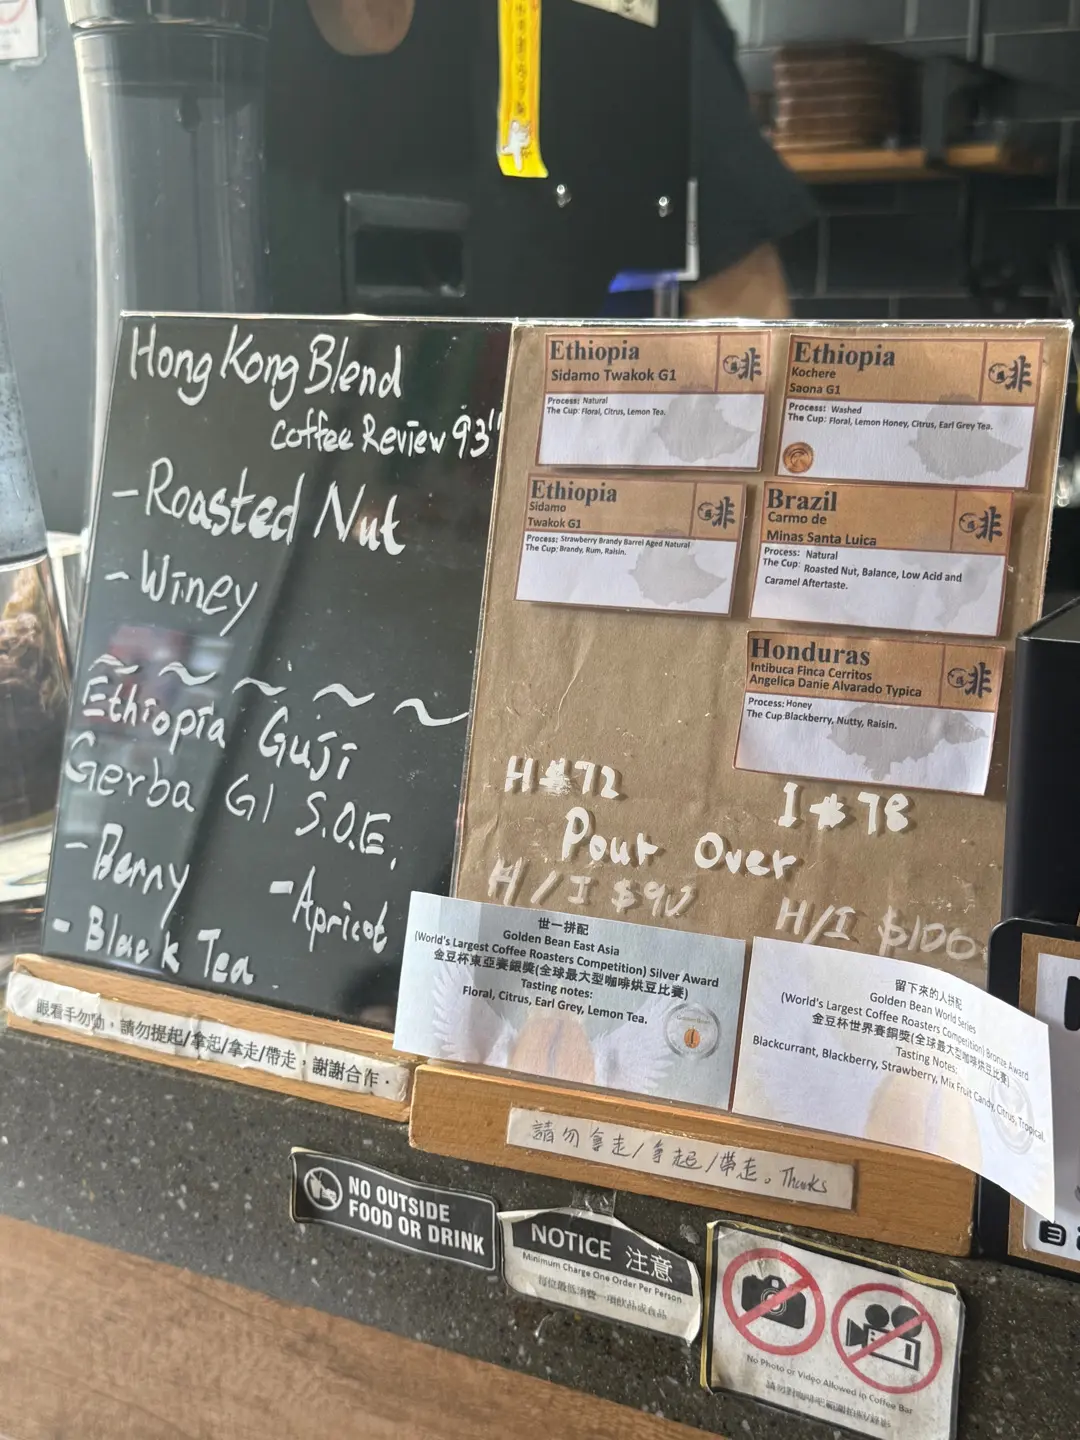 Hong Kong Blend
Coffee Review 93"
- Roasted Nut
- Winey
Ethiopia Guji
Gerba G1 S.O.E.
- Berry
- Apricot
- Black Tea
眼看手勿動，請勿提起/拿起/拿走/帶走，謝謝合作。
Ethiopia
Sidamo Twakok G1
啡
Process: Natural
The Cup: Floral, Citrus, Lemon Tea.
Ethiopia
Kochere
Saona G1
啡
Process: Washed
The Cup: Floral, Lemon Honey, Citrus, Earl Grey Tea.
Ethiopia
Sidamo
Twakok G1
啡
Process: Strawberry Brandy Barrel Aged Natural
The Cup: Brandy, Rum, Raisin.
Brazil
Carmo de
Minas Santa Luica
啡
Process: Natural
The Cup: Roasted Nut, Balance, Low Acid and
Caramel Aftertaste.
Honduras
Intibuca Finca Cerritos
Angelica Danie Alvarado Typica
啡
Process: Honey
The Cup:Blackberry, Nutty, Raisin.
H $72
I $78
Pour Over
H/I $90
H/I $100
世一拼配
Golden Bean East Asia
(World's Largest Coffee Roasters Competition) Silver Award
金豆杯東亞賽銀獎(全球最大型咖啡烘豆比賽)
Tasting notes:
Floral, Citrus, Earl Grey, Lemon Tea.
留下來的人拼配
Golden Bean World Series
(World's Largest Coffee Roasters Competition) Bronze Award
金豆杯世界賽銅獎(全球最大型咖啡烘豆比賽)
Tasting Notes:
Blackcurrant, Blackberry, Strawberry, Mix Fruit Candy, Citrus, Tropical.
請勿拿走/拿起/帶走。Thanks
NO OUTSIDE
FOOD OR DRINK
NOTICE 注意
Minimum Charge One Order Per Person
每位最低消費一項飲品或食品
No Photo or Video Allowed in Coffee Bar